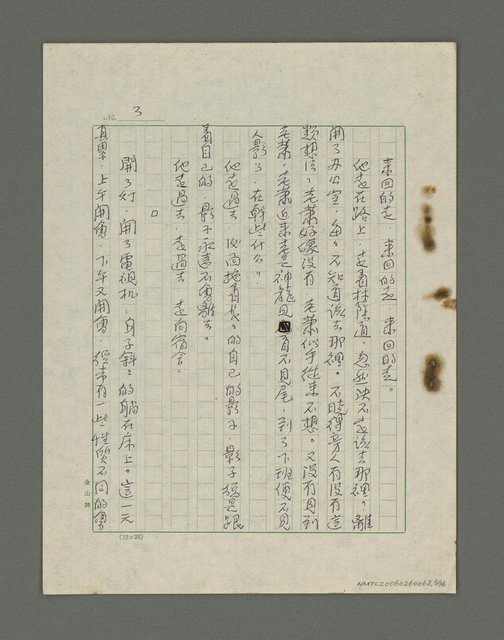 No. 3
來回的走,來回的走,來回的走。
他走在路上,走着林蔭道,忽然決不定該去那裡。離
開了办公室,每々不知道該去那裡。不曉得旁人有没有這
類想法。老蕭好像没有,老蕭似乎從來不想。又没有見到
老蕭,老蕭近來走神龍見首不見尾,到了下班便不見
人影了,在幹些什么?
他走過去,後面拖着長々的自己的影子,影子總是跟
着自己的,影子永遠不會離去。
他走過去,走過去,走向宿舍。
□
開了灯,開了電視机,身子斜々的躺在床上。這一天
真累,上午開會,下午又開會,經常有一些性質不同的會
金山牌
(12×25)
NMTL20060260068, 3/46